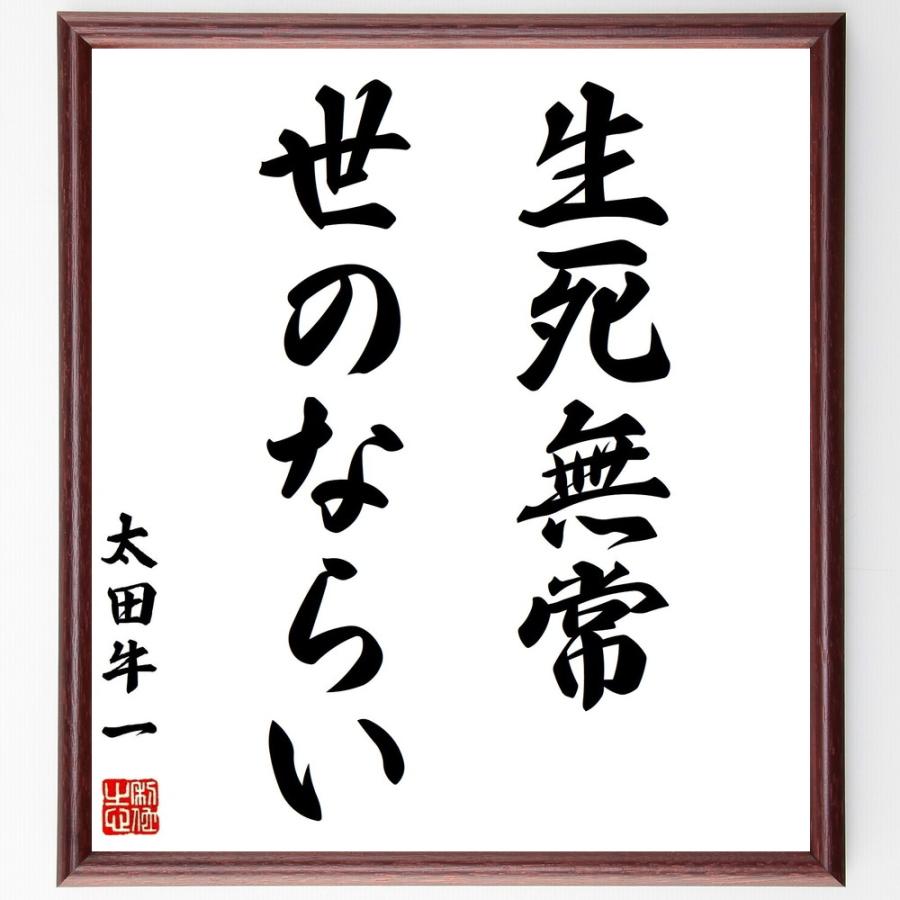 生死無常
世のならい
太田牛一